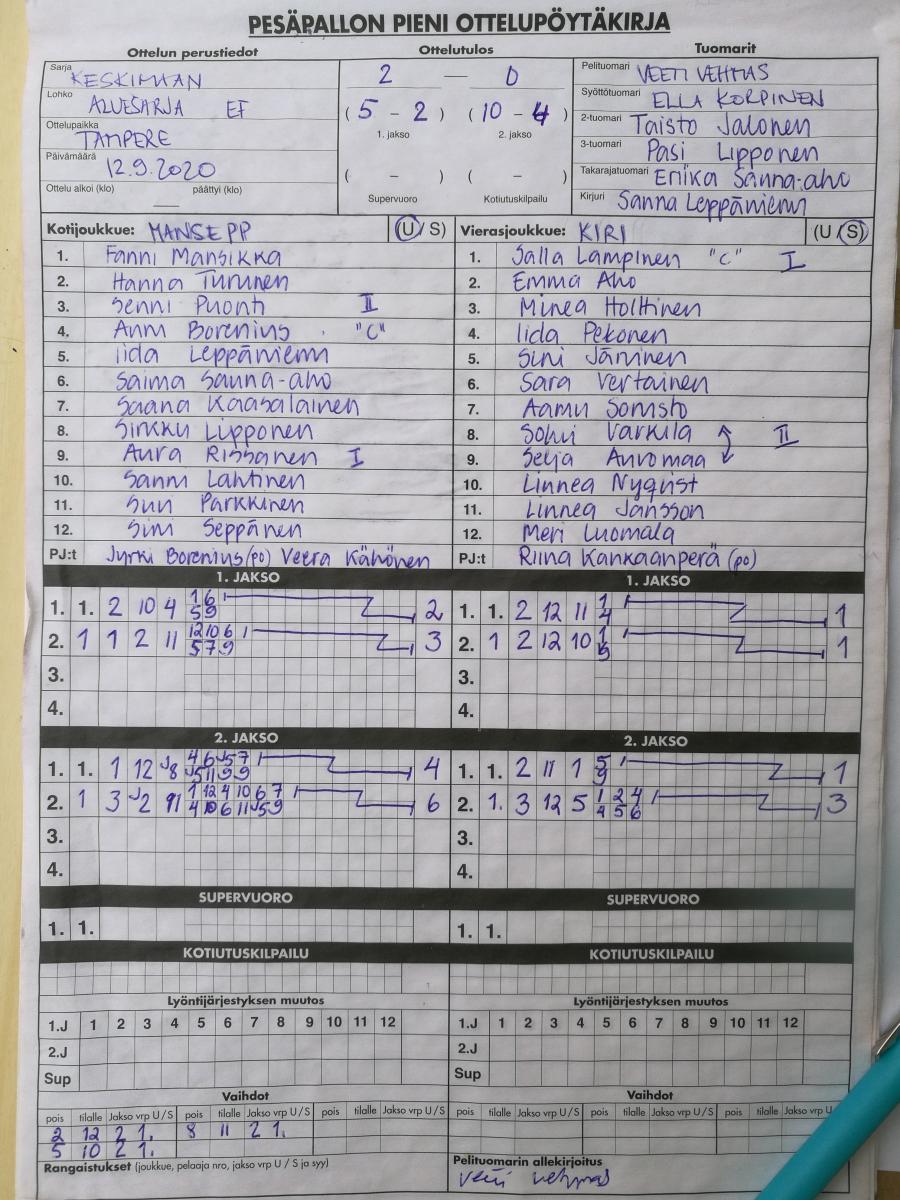 PESÄPALLON PIENI OTTELUPÖYTÄKIRJA
Ottelun perustiedot
Sarja KESKIMAAN
Lohko ALUESARJA EF
Ottelupaikka TAMPERE
Päivämäärä 12.9.2020
Ottelu alkoi (klo) — päättyi (klo)
Ottelutulos
2 — 0
(5 - 2) (10 - 4)
1. jakso 2. jakso
( – ) ( – )
Supervuoro Kotiutuskilpailu
Tuomarit
Pelituomari VEETI VEHMAS
Syöttötuomari ELLA KORPINEN
2-tuomari Taisto Jalonen
3-tuomari Pasi Lipponen
Takarajatuomari Eriika Sanna-aho
Kirjuri Sanna Leppäniemi
Kotijoukkue: MANSE PP (U/ S)
1. Fanni Mansikka
2. Hanna Turunen
3. Senni Puonti II
4. Anni Borenius "C"
5. Iida Leppäniemi
6. Saima Sauna-aho
7. Saana Kaasalainen
8. Sirkku Lipponen
9. Aura Rissanen I
10. Sanni Lahtinen
11. Suvi Parkkinen
12. Sini Seppänen
PJ:t Jyrki Borenius (po) Veera Kähönen
Vierasjoukkue: KIRI (U/ S)
1. Salla Lampinen "C" I
2. Emma Aho
3. Minea Holttinen
4. Iida Pekonen
5. Sini Järvinen
6. Sara Vertainen
7. Aamu
8. Varkila II
9. Selja Auvomaa
10. Linnea Nyqvist
11. Linnea Jansson
12. Meri Luomala
PJ:t Riina Kankaanperä (po)
1. JAKSO
1. 1. 2 10 4 1 6 2
5 9
2. 1 1 2 11 12 10 6 3
5 7 9
3.
4.
1. JAKSO
1. 1. 2 12 11 1 1
4
2. 1 2 12 10 1
3.
4.
2. JAKSO
1. 1. 1 12 J8 4 6 J5 7 4
J5 11 9 9
2. 1 3 J2 1 12 4 10 6 7 6
4 10 6 11 J5 9
3.
4.
2. JAKSO
1. 1. 2 11 1 5 1
9
2. 1. 3 12 5 1 2 4 3
4 5 6
3.
4.
SUPERVUORO
1. 1.
SUPERVUORO
1. 1.
KOTIUTUSKILPAILU
KOTIUTUSKILPAILU
Lyöntijärjestyksen muutos
1.J 1 2 3 4 5 6 7 8 9 10 11 12
2.J
Sup
Lyöntijärjestyksen muutos
1.J 1 2 3 4 5 6 7 8 9 10 11 12
2.J
Sup
Vaihdot
pois tilalle Jakso vrp U / S pois tilalle Jakso vrp U / S pois tilalle Jakso vrp U / S
2 12 2 1. 8 11 2 1.
5 10 2 1.
Rangaistukset (joukkue, pelaaja nro, jakso vrp U / S ja syy)
Vaihdot
pois tilalle Jakso vrp U / S pois tilalle Jakso vrp U / S pois tilalle Jakso vrp U
Pelituomarin allekirjoitus
Veeti Vehmas